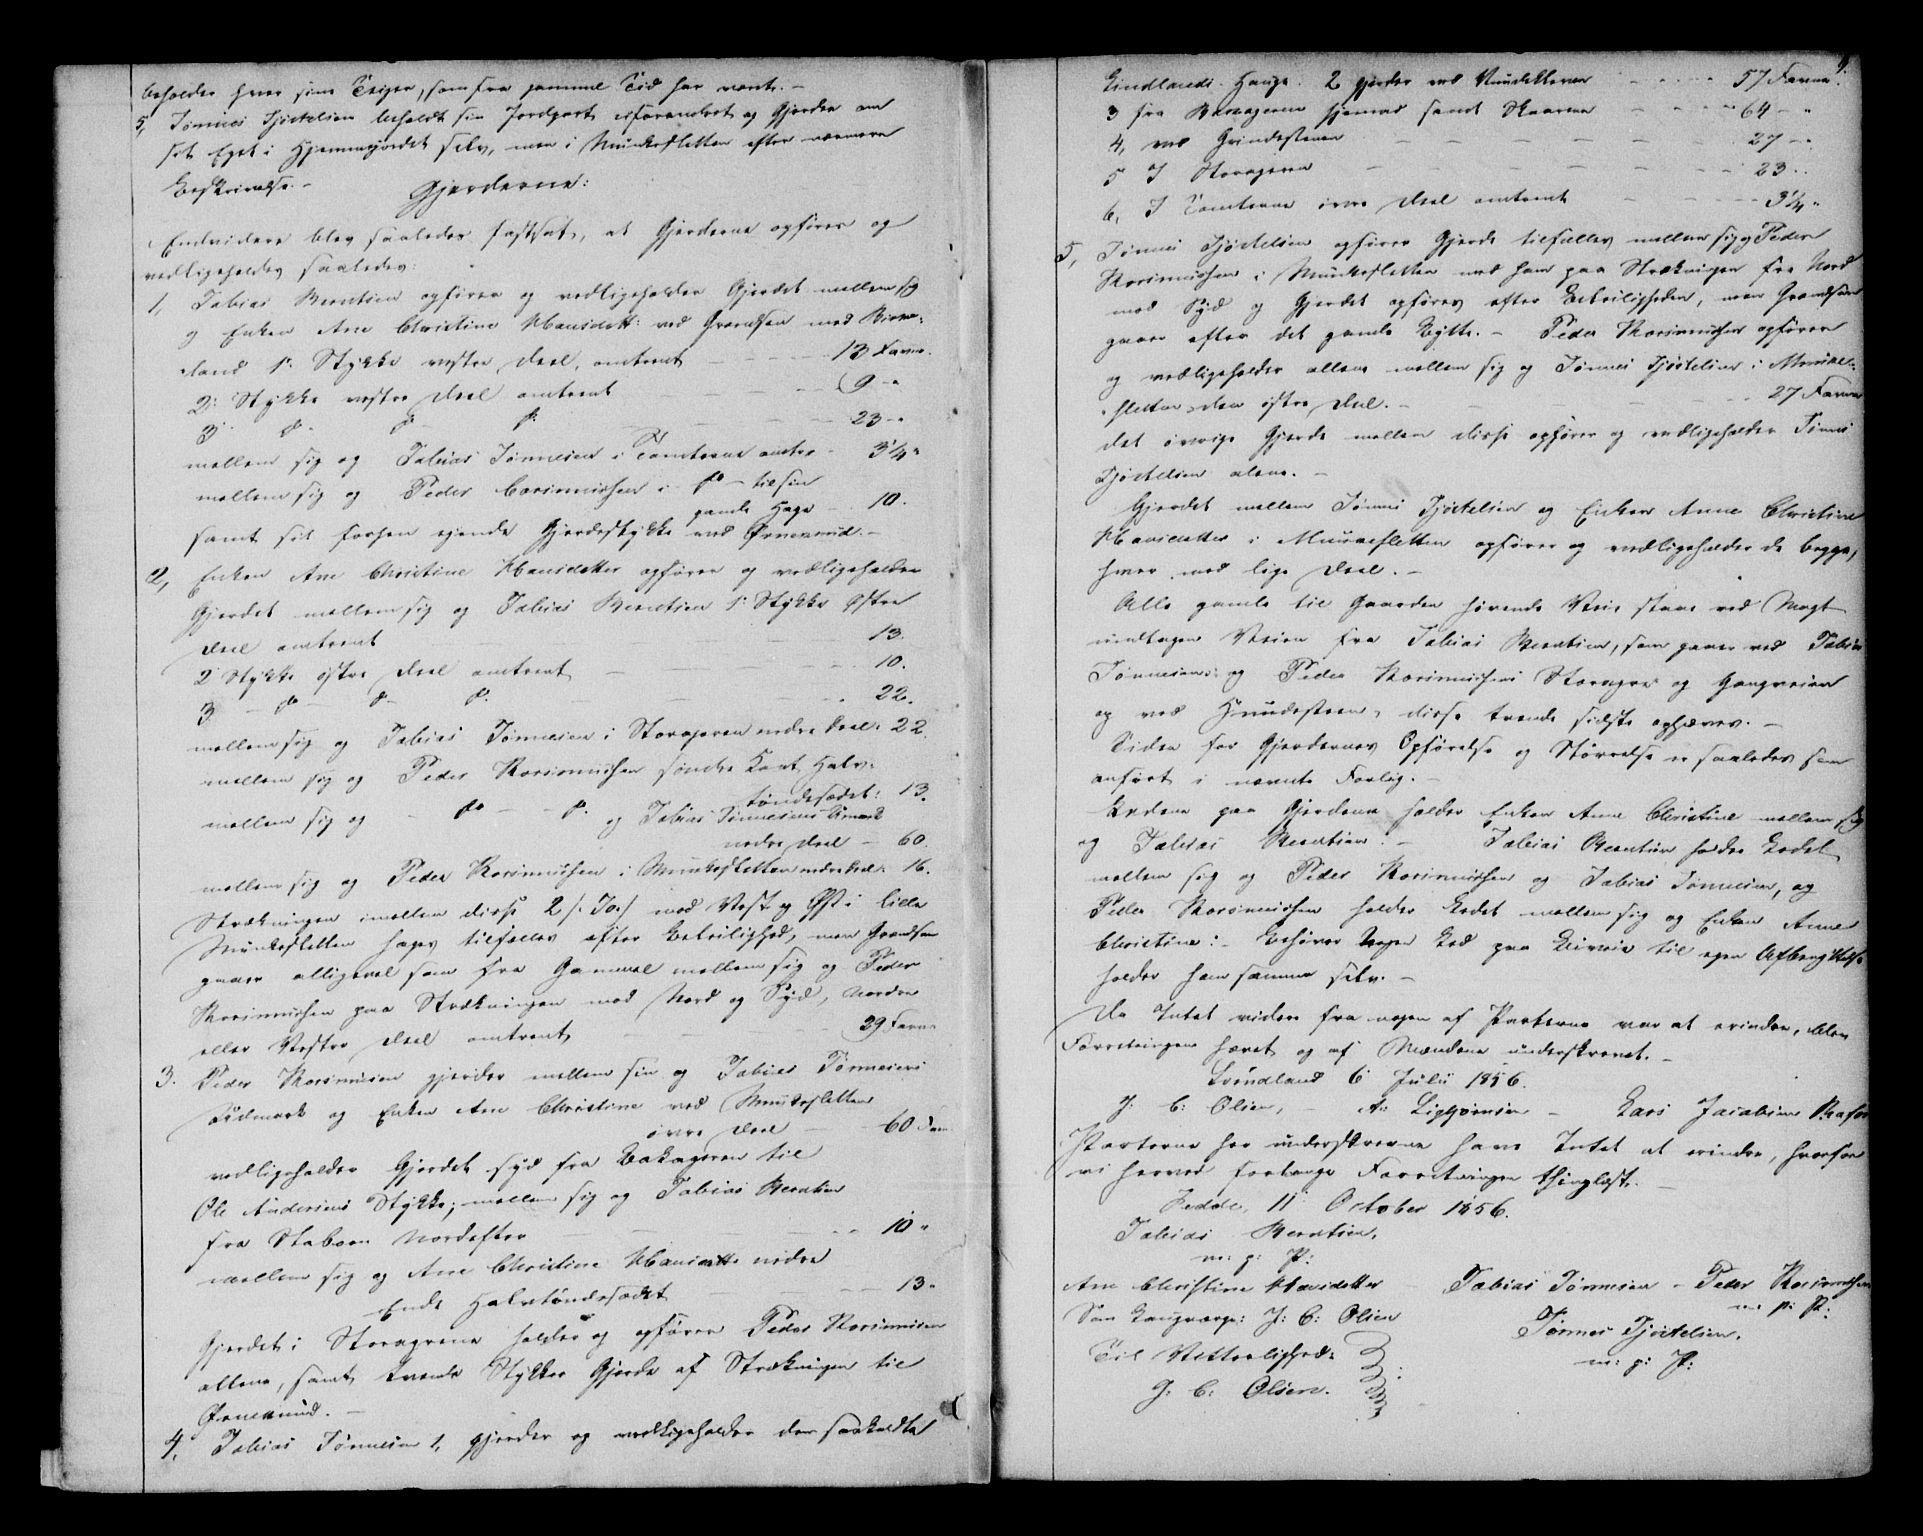 beholder hver sine Teiger, som fra gammel Tid har været. -
5, Tønnes Tjøstelsen beholdt sin Jordpart uforandret og Gjerder om
sit Eget i Hjemmejordet selv, men i Munkesletten efter nærmere
Beskrivelse. -
Gjerderne:
Endvidere blev saaledes fastsat, at Gjerderne opføres og
vedligeholdes saaledes:
1, Tobias Berntsen opfører og vedligeholder Gjerdet mellem sig
og Enken Ane Christine Hansdatt: ved Grændsen mod
land 1: Stykke vestre Deel, omtrent - - - 13 Favne.
2: Stykke vestre Deel omtrent - - 9 - "
3 do do do - - 23 - "
mellem sig og Tobias Tønnesen i Tomterne omtr - 3 1/4 "
mellem sig og Peder Corsinussen i - do - til sin
gamle Hage - 10.
samt sit forhen eiende Gjerdestykke ved Ørnenuud. -
2, Enken Ane Christine Hansdatter opfører og vedligeholder
Gjerdet mellem sig og Tobias Berntsen 1: Stykke østre
Deel omtrent - - - 13.
2 Stykke østre Deel omtrent - - - 10.
3 - do - do - do. - - 22.
mellem sig og Tobias Tønnesen i Storageren nedre Deel: 22.
mellem sig og Peder Korsinussen søndre Kant Halv-
tøndesædet: 13.
mellem sig og - do - - do. og Tobias Tønnesens
nedre Deel - 60.
mellem sig og Peder Korsinussen i Munkesletten nedre Deel: 16.
Strækningen imellem disse 2 /: To :/ mod Vest og Øst i lille
Munkesletten tages tilfælles efter Beleilighed, men Grændsen
gaaer alligevel som fra Gammel mellem sig og Peder
Korsinussen paa Strækningen mod Nord og Syd, Nordre
eller Vestre Deel omtrent - - - 29 Favne
3. Peder Korsinusen gjerder mellem sin og Tobias Tønnesens
Udmark og Enken Ane Christine ved Munkesletten
øvre Deel - - 60 Favn
vedligeholder Gjerdet syd fra Bakageren til
Ole Andersens Stykke; mellem sig og Tobias Berntsen
fra Staboen Nordefter - - - 10 "
mellem sig og Ane Christine Hansdatte nedre
Ende Halvtøndesædet - - - 13 "
Gjerdet i Storagrene holder og opfører Peder Korsinusen
allene, samt tvende Stykker Gjerde af Strækningen til
Ørnenuud. -
4, Tobias Tønnesen 1, gjerder og vedligeholder den saakaldte
9.
Lindlands Hauge. 2 gjerder ved - - - 57 Favne.
3 fra hjemad samt Skaarene - - - 64 - "
4, ved Grindesteenen - - - 27 - "
5 I Storageren - - - 23 - "
6, I Tomterne øvre Deel omtrent - - - 3 1/4 "
5, Tønnes Tjøstelsen opfører Gjerde tilfælles mellem sig og Peder
Korsinussen i Munkesletten med ham paa Strækningen fra Nord
mod Syd og Gjerdet opføres efter Beleiligheden, men Grændsen
gaaer efter det gamle Bytte. - Peder Korsinussen opfører
og vedligeholder allene mellem sig og Tønnes Tjøstelsen i Munke-
sletten den østre Deel. - - - 27 Favne
det øvrige Gjerde mellem disse opfører og vedligeholder Tønnes
Tjøstelsen alene. -
Gjerdet mellem Tønnes Tjøstelsen og Enken Anne Christine
Hansdatter i Munkesletten opfører og vedligeholder de begge,
hver med lige Deel. -
Alle gamle til Gaarden hørende Veie staae ved Magt
undtagen Veien fra Tobias Berntsen, som gaaer ved Tobias
Tønnesens og Peder Korsinussens Storager og Gangveien
og ved , disse tvende sidste ophæves. -
Tiden for Gjerdernes Opførelse og Størrelse er saaledes som
anført i nævnte Forlig. -
Ledene paa Gjerdene holder Enken Anne Christine mellem sig
og Tobias Berntsen. - Tobias Berntsen holder Ledet
mellem sig og Peder Korsinussen og Tobias Tønnesen, og
Peder Korsinussen holder Ledet mellem sig og Enken Anne
Christine: - Behøver Nogen Led paa til egen Afbenyttelse
holder ham samme selv. -
Da Intet videre fra nogen af Parterne var at erindre, blev
Forretningen hævet og af Mændene underskrevet. -
Lindland 6 Juli 1856.
J. C: Olsen, - A: - Lars Jacobsen
Parterne her underskrevne have Intet at erindre, hvorfor
vi herved forlange Forretningen thinglæst. -
Fedde, 11 October 1856.
Tobias Berntsen,
m: p: P:
Ane Christine Hansdatter - Tobias Tønnesen - Peder Korsinussen
m: p: P:
Som Laugværge: J: C: Olsen
Tønnes Tjøstelsen,
m: p: P:
Til Vitterlighed:
J: C: Olsen.